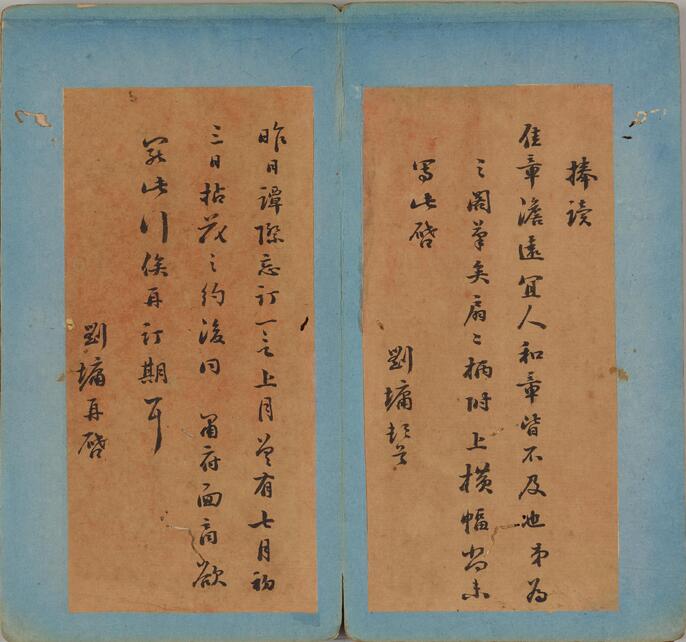 捧讀
佳章澹遠宜人和章皆不及也弟為
之閣筆矣扇二柄附上橫幅尚未
寫此啓
劉墉頓首
昨日譚際忘訂一言上月曾有七月初
三日拈花之約後因 府面商欲
罷此行俟再訂期耳
劉墉再啓